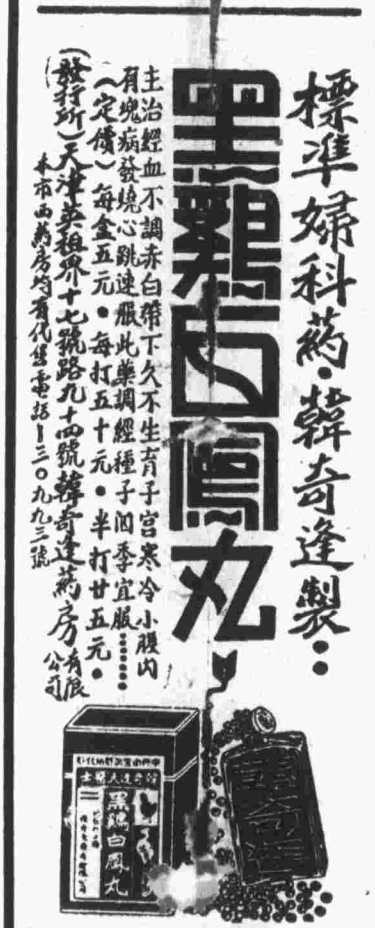 標準婦科藥·韓奇逢製：
黑鷄白鳳丸
主治經血不調赤白帶下久不生育子宮寒冷小腹內
有塊病發燒心跳速服此藥調經種子四季宜服
（定價）每盒五元·每打五十元·半打廿五元·
（發行所）天津英租界十七號路九十四號韓奇逢藥房有限公司
本市西藥房均有代售電話三〇九九三號
黑鷄白鳳丸
韓奇逢